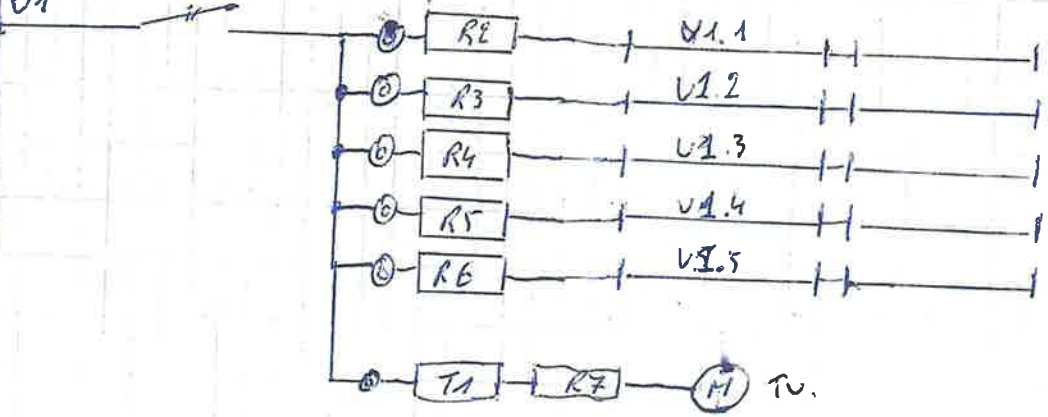 U1
R2 V1.1
R3 V1.2
R4 V1.3
R5 V1.4
R6 V1.5
T1 R7 M TV.